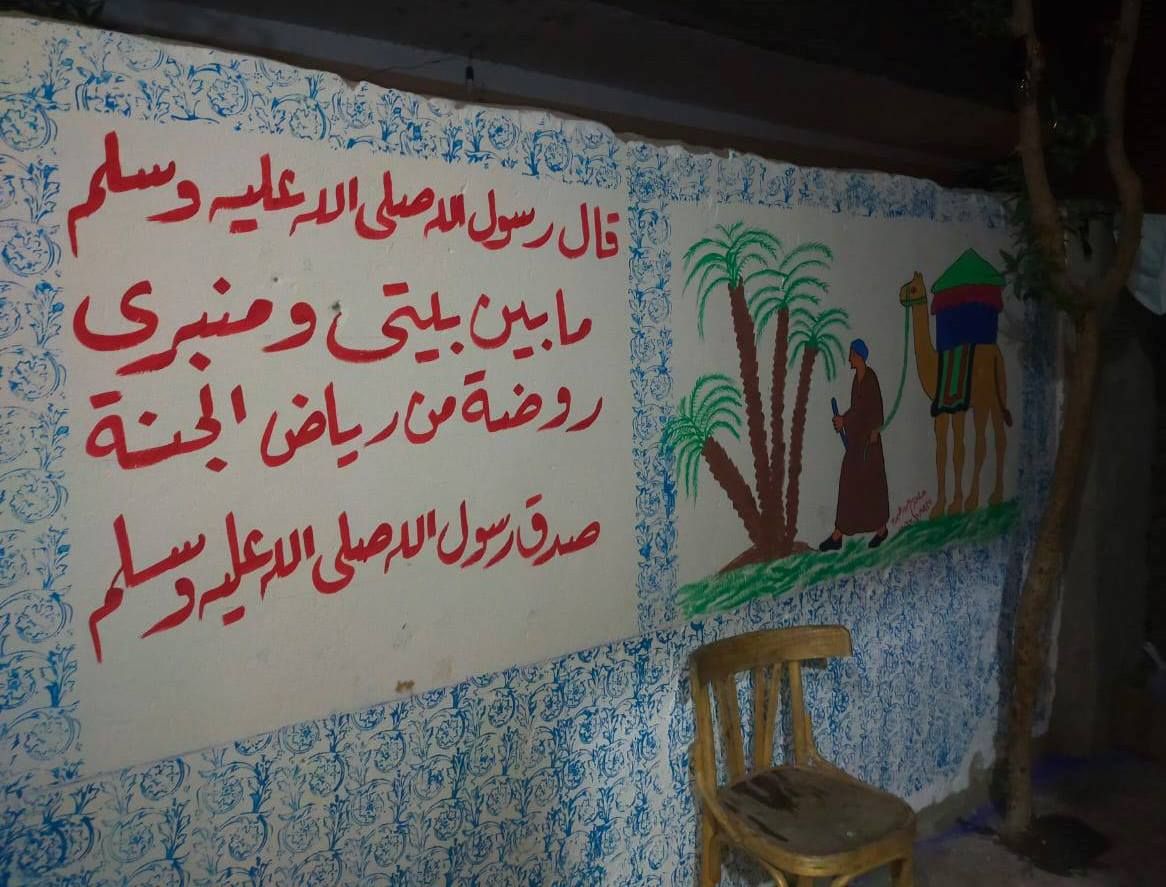 قال رسول الله صلى الله عليه وسلم
ما بين بيتى ومنبرى
روضة من رياض الجنة
صدق رسول الله صلى الله عليه وسلم